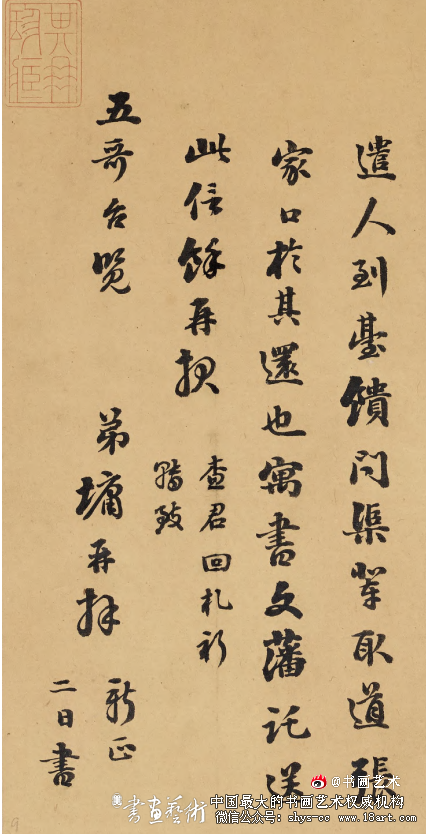 遣人到臺饋問渠輩取道張
家口於其還也寓書文藩託送
此信餘再报
查君回札祈
轉致
五哥台覽
弟墉再拜
新正
二日書
@书画艺术
書畫藝術
中国最大的书画艺术权威机构
微信公众号: shys-cc www.18art.com